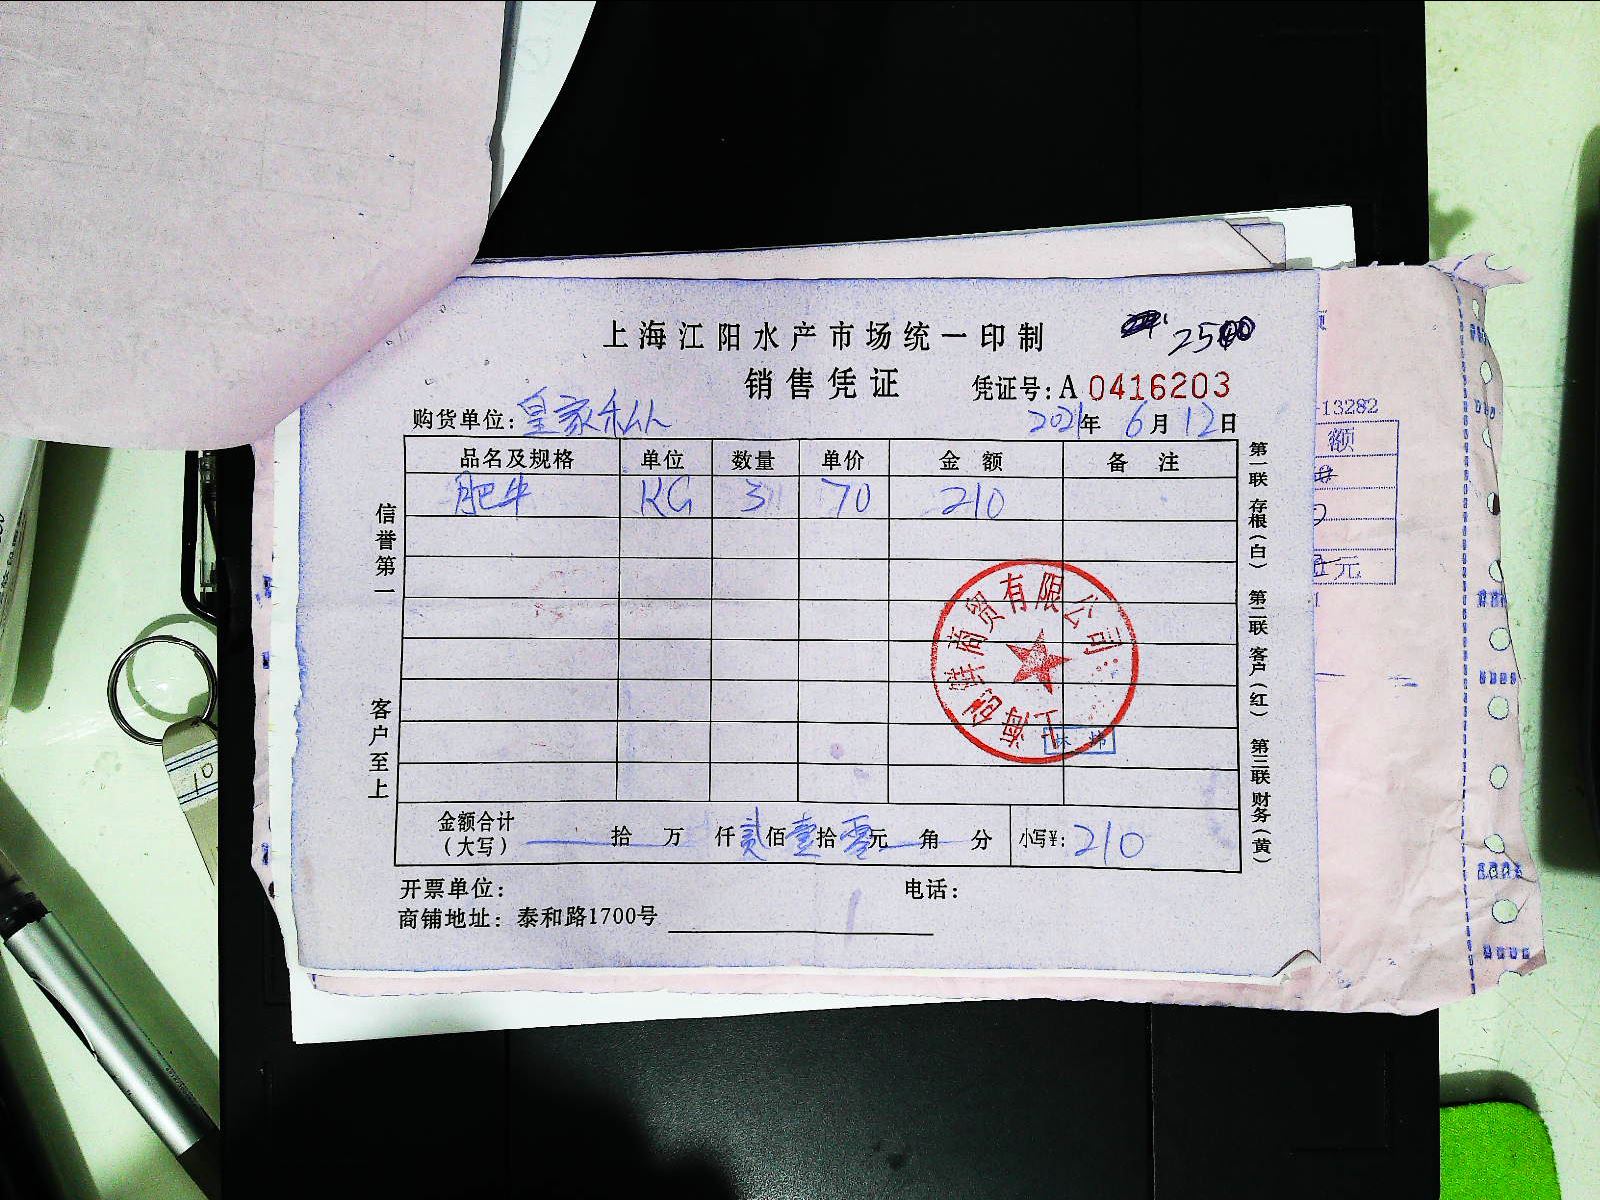 上海江阳水产市场统一印制
销售凭证
凭证号:A 0416203
购货单位:皇家
2021年 6月 12日
品名及规格 单位 数量 单价 金额 备注
肥牛 KG 3 70 210
信誉第一
客户至上
第一联 存根(白) 第二联 客户(红) 第三联 财务(黄)
商贸有限公司
上海
金额合计(大写) 拾 万 仟 贰佰 壹拾 零元 角 分 小写¥: 210
开票单位: 电话:
商铺地址: 泰和路1700号
-13282
额
元